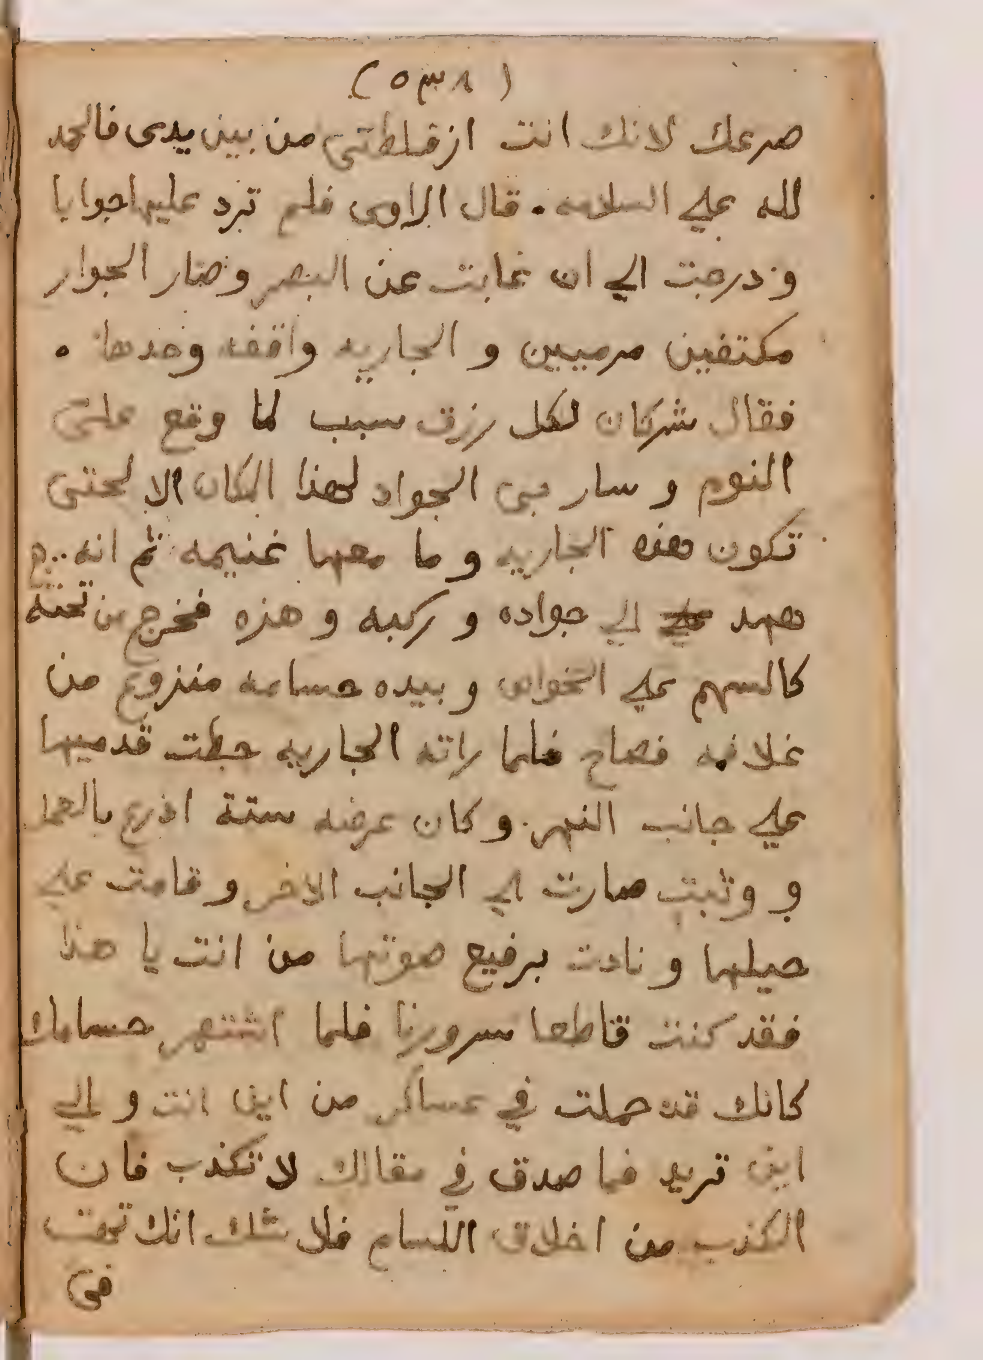 (٥٣٨)
صرعك لانك انت ازقلطتى من بين يدى فالحمد
لله علي السلامه . قال الراوى فلم ترد عليها جوابا
و درجت الي ان غابت عن البصر وصار الجوار
مكتفين مرميين و الجاريه واقفه وحدها .
فقال شركان لكل رزق سبب لما وقع على
النوم و سار بى الجواد لهذا المكان الا لحتى
تكون هذه الجاريه و ما معها غنيمه ثم انه
عمد الي جواده و ركبه و هزه فخرج من تحته
كالسهم علي الخواص و بيده حسامه منزوع من
غلافه فصاح فلما راته الجاريه حطت قدميها
علي جانب النهر . و كان عرضه ستة اذرع بالعمل
و وثبت صارت الي الجانب الاخر و قامت علي
حيلها و نادت برفيع صوتها من انت يا هذا
فقد كنت قاطعا سرورنا فلما اشتهر حسامك
كانك قد حملت في عساكر من اين انت و الي
اين تريد فاصدق في مقالك لا تكذب فان
الكذب من اخلاق اللسام فلا شك انك تهت
فى